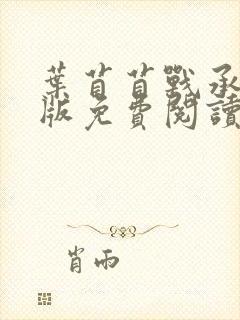 葉苜苜戰承
版免費閱讀
肖雨